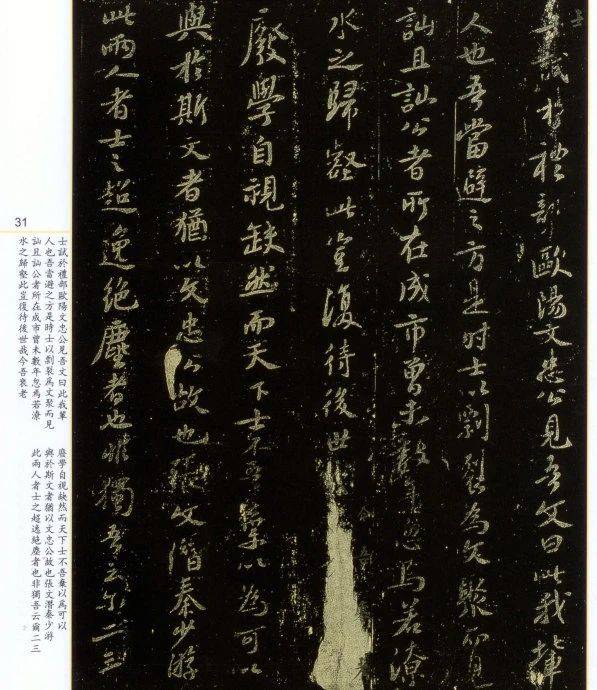 士試於禮部歐陽文忠公見吾文曰此我輩
人也吾當避之方是时士以剽裂為文聚而見
訕且訕公者所在成市曾未數年忽焉若潦
水之歸壑此豈復待後世
廢學自視缺然而天下士不吾棄以為可以
與於斯文者猶以文忠公故也張文潛秦少游
此兩人者士之超逸絕塵者也非獨吾云尔二三
31
士試於禮部歐陽文忠公見吾文曰此我輩
人也吾當避之方是時士以剽裂為文聚而見
訕且訕公者所在成市曾未數年忽焉若潦
水之歸壑此豈復待後世哉今吾衰老
廢學自視缺然而天下士不吾棄以為可以
與於斯文者猶以文忠公故也張文潛秦少游
此兩人者士之超逸絕塵者也非獨吾云爾二三